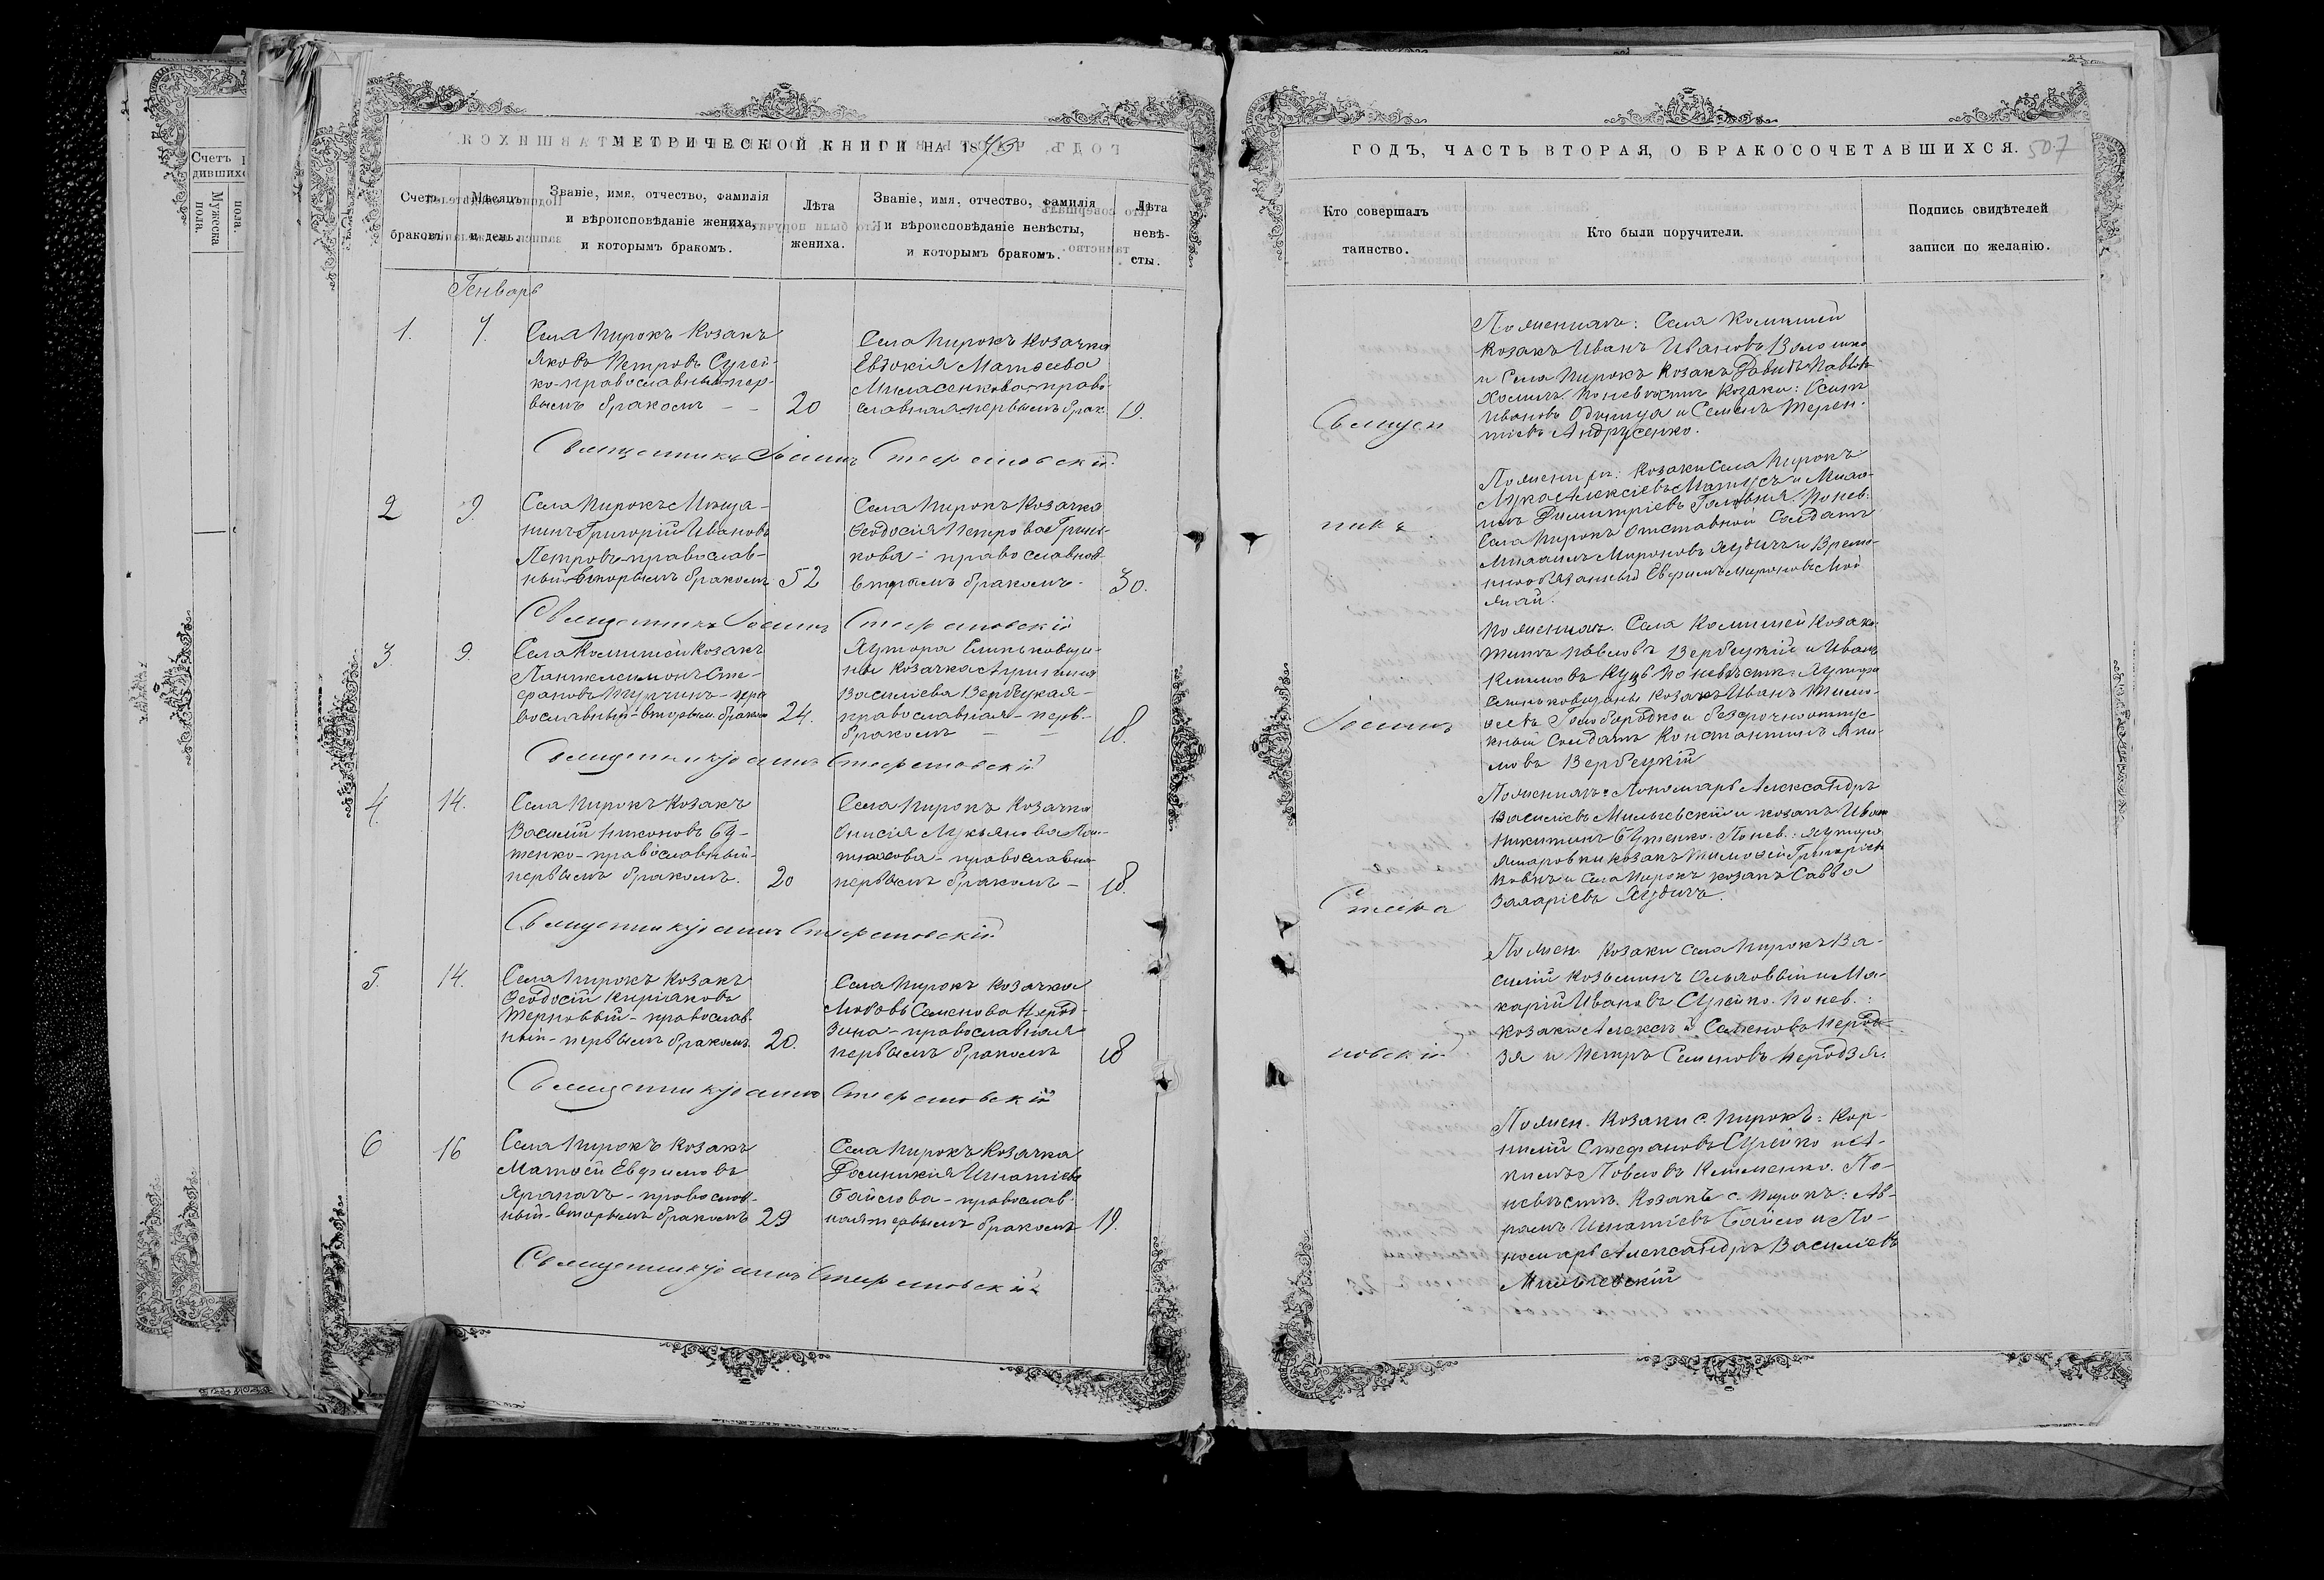 Счетъ
дившихс
Мужска
пола.
пола.
МЕТРИЧЕСКОЙ КНИГИ НА 18
Счетъ
браковъ.
Мѣсяцъ
и день.
Званіе, имя, отчество, фамилія
и вѣроисповѣданіе жениха,
и которымъ бракомъ.
Лѣта
жениха.
Званіе, имя, отчество, фамилія
и вѣроисповѣданіе невѣсты,
и которымъ бракомъ.
Лѣта
невѣ-
сты.
Генварь
1.
7.
Села Пирокъ Козакъ
Яковъ Петровъ Сулей-
ко-православный-пер-
вымъ бракомъ
20
Села Пирокъ Козачка
Евдокія Матѳеева
православная-первымъ брак.
19.
Священникъ Іоаннъ Стефановскій
2
9.
Села Пирокъ Мѣща-
нинъ Григорій Ивановъ
Петровъ-православ-
ный-вторымъ бракомъ
52
Села Пирокъ Козачка
Ѳеодосія Петрова
кова - православная
вторымъ бракомъ.
30.
Священникъ Іоаннъ Стефановскій
3.
9.
Села Комишей Козакъ
Пантелеимонъ Сте-
фановъ Турчинъ - пра
вославный-вторымъ бракомъ
24.
Хутора
ны Козачка
Василіева Вербецкая-
православная - перв-
бракомъ
18.
Священникъ Іоаннъ Стефановскій
4
14.
Села Пирокъ Козакъ
Василій Никоновъ Бу-
тенко-православный-
первымъ бракомъ.
20
Села Пирокъ Козачка
Онисія Лукьянова
православна
первымъ бракомъ -
18.
Священникъ Іоаннъ Стефановскій
5.
14.
Села Пирокъ Козакъ
Ѳеодосій Киріаковъ
Терновый - православ-
ный - первымъ бракомъ.
20.
Села Пирокъ Козачка
Любовь Семенова Нерод-
зина - православная
первымъ бракомъ
18
Священникъ Іоаннъ Стефановскій
6
16
Села Пирокъ Козакъ
Матѳей Евфимовъ
православ-
ный-вторымъ бракомъ
29
Села Пирокъ Козачка
Домникія Игнатіева
Байлова - православ
ная первымъ бракомъ
19.
Священникъ Іоаннъ Стефановскій
ГОДЪ, ЧАСТЬ ВТОРАЯ, О БРАКОСОЧЕТАВШИХСЯ.
507
Кто совершалъ
таинство.
Кто были поручители.
Подпись свидѣтелей
записи по желанію.
Священ
никъ
Іоаннъ
Стефа
новскій
По женихѣ: Села Комишей
Козакъ Иванъ Ивановъ Волошко
и Села Пирокъ Козакъ Давидъ
По невѣстѣ Козаки: Осипъ
Ивановъ Одинца и Семенъ Терен-
тіевъ Андрусенко.
По женихѣ: Козаки Села Пирокъ
Лука Алексіевъ и Миха-
илъ Димитріевъ По нев.
Села Пирокъ Отставной Солдатъ
Михаилъ Мироновъ Худичъ и Време-
ннообязанный Евфимъ Мироновъ
По женихѣ. Села Комишей Козаки
Павловъ Вербецкій и Иванъ
Климовъ Куцъ По невѣстѣ: Хутора
Козакъ Иванъ Тимо-
ѳеевъ Голобородко и безсрочноотпус
кный Солдатъ Константинъ
мовъ Вербецкій
По женихѣ: Пономарь Александръ
Василіевъ и козакъ Иванъ
Никитинъ Бутенко. По нев.: Хутора
козакъ Тимоѳей Григоріевъ
и Села Пирокъ козакъ Савва
Захаріевъ Худичъ.
По жен. Козаки Села Пирокъ Ва-
силій Козьминъ Ольховый и Ма-
карій Ивановъ Сулейко. По нев.:
Козаки Алексѣй Семеновъ Нерод-
зя и Петръ Семеновъ Неродзя.
По жен. Козаки с. Пирокъ: Кор-
нилій Стефановъ Сулейко и А-
кимъ Павловъ Клименко. По-
невѣстѣ. Козакъ с. Пирокъ: Ав-
рамъ Игнатіевъ Байло и По-
номарь Александръ Василіевъ